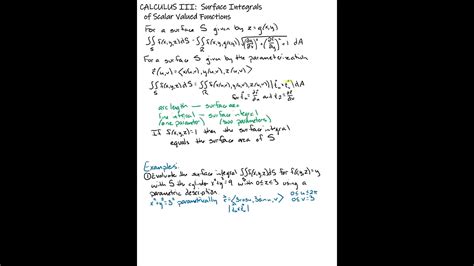 CALCULUS III: Surface Integrals
of Scalar Valued Functions
For a surface S given by z = g(x,y)
∬_S f(x,y,z)dS = ∬_R f(x,y,g(x,y)) √((∂z/∂x)² + (∂z/∂y)² + 1) dA
For a surface given by the parameterization
r⃗(u,v) = <x(u,v), y(u,v), z(u,v)>
∬_S f(x,y,z)dS = ∬_R f(x(u,v), y(u,v), z(u,v)) |t⃗_u × t⃗_v| dA
for t⃗_u = ∂r⃗/∂u and t⃗_v = ∂r⃗/∂v
arc length → surface area
line integral → surface integral
(one parameter) (two parameters)
If f(x,y,z) = 1 then the surface integral
equals the surface area of S
Examples:
① Evaluate the surface integral ∬_S f(x,y,z)dS for f(x,y,z) = y
with S the cylinder x²+y²=9 with 0≤z≤3 using a
parametric description.
x²+y²=3² parametrically r⃗ = <3cosu, 3sinu, v> 0≤u≤2π
0≤v≤3
|t⃗_u × t⃗_v|